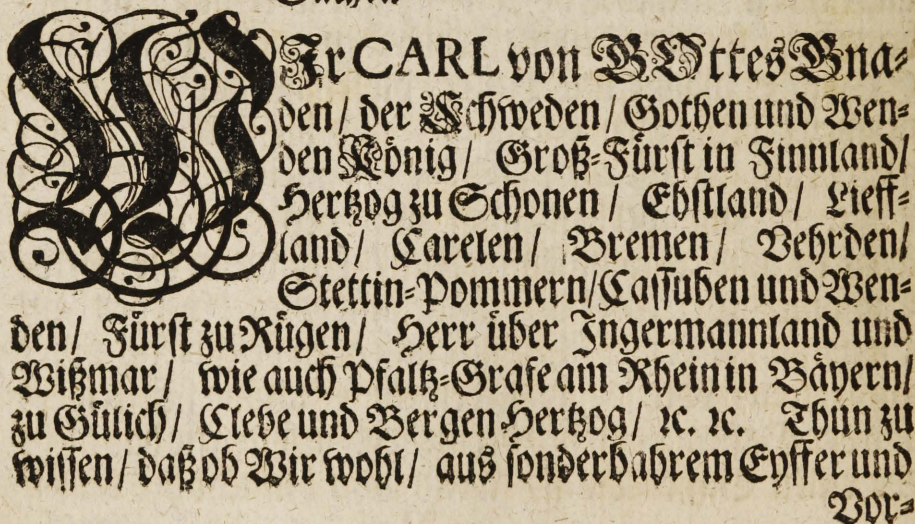 WIr CARL von GOttes Gna=
den/ der Schweden/ Gothen und Wen=
den König/ Groß=Fürst in Finnland/
Hertzog zu Schonen/ Ehstland/ Lieff=
land/ Carelen/ Bremen/ Vehrden/
Stettin=Pommern/ Cassuben und Wen=
den/ Fürst zu Rügen/ Herr über Ingermannland und
Wißmar/ wie auch Pfaltz=Grafe am Rhein in Bäyern/
zu Gülich/ Cleve und Bergen Hertzog/ ꝛc. ꝛc. Thun zu
wissen/ daß ob Wir wohl/ aus sonderbahrem Eyffer und
Vor=